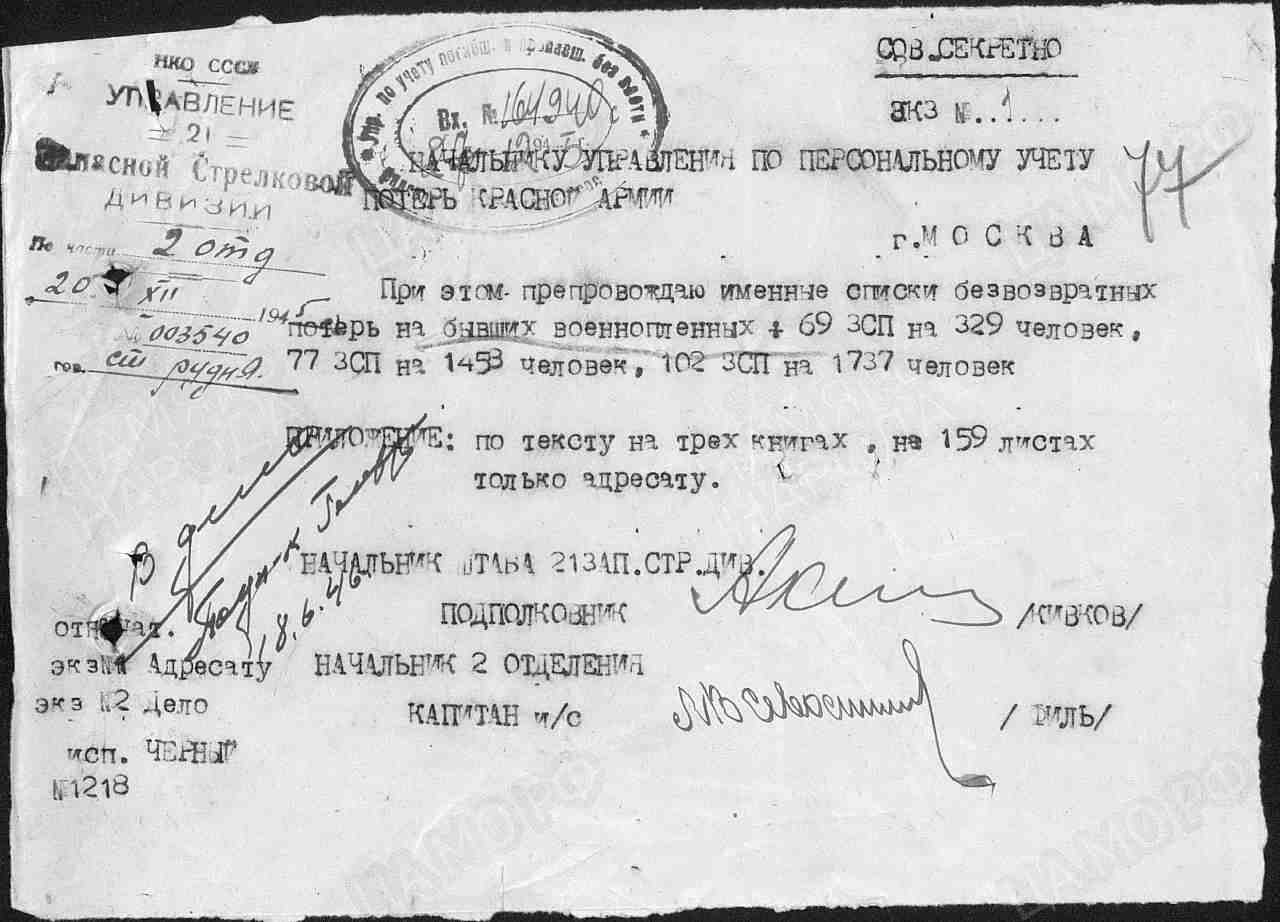 НКО СССР
УПРАВЛЕНИЕ
= 21 =
Запасной Стрелковой
ДИВИЗИИ
По части 2 отд
20 XII 1945
№ 003540
гор. ст рудня.
Упр. по учету погибш. и пропавш. без вести
Вх. № 164940с
СОВ.СЕКРЕТНО
ЭКЗ №..1...
77
НАЧАЛЬНИКУ УПРАВЛЕНИЯ ПО ПЕРСОНАЛЬНОМУ УЧЕТУ
ПОТЕРЬ КРАСНОЙ АРМИИ
г.МОСКВА
При этом препровождаю именные списки безвозвратных
потерь на бывших военнопленных + 69 ЗСП на 329 человек,
77 ЗСП на 1453 человек, 102 ЗСП на 1737 человек
ПРИЛОЖЕНИЕ: по тексту на трех книгах , на 159 листах
только адресату.
В дело
18.6.46
НАЧАЛЬНИК ШТАБА 21ЗАП.СТР.ДИВ.
ПОДПОЛКОВНИК /КИВКОВ/
НАЧАЛЬНИК 2 ОТДЕЛЕНИЯ
КАПИТАН и/с / ФИЛЬ/
отпечат.
экз№1 Адресату
экз №2 Дело
исп. ЧЕРНЫЙ
№1218
ЦАМО РФ